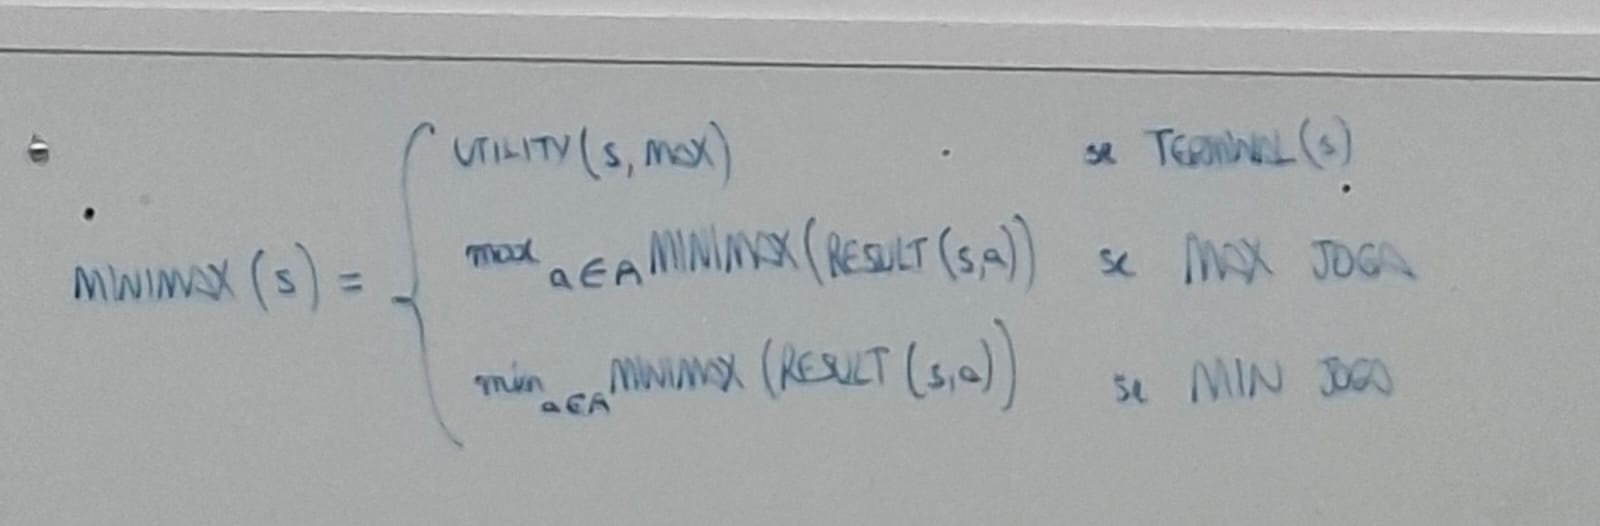 UTILITY(s, MAX) se TERMINAL(s)
max a∈A MINIMAX(RESULT(s,a)) se MAX JOGA
MINIMAX(s) =
min a∈A MINIMAX(RESULT(s,a)) se MIN JOGA